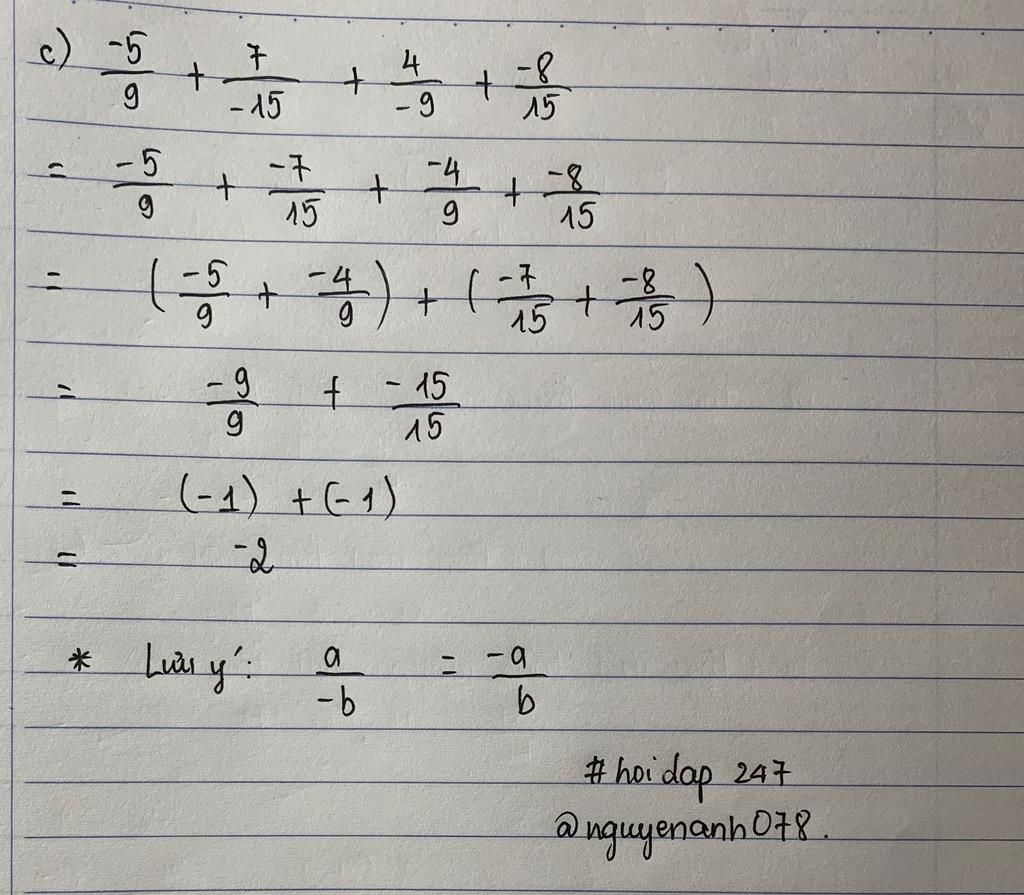 c) -5/9 + 7/-15 + 4/-9 + -8/15
= -5/9 + -7/15 + -4/9 + -8/15
= (-5/9 + -4/9) + (-7/15 + -8/15)
= -9/9 + -15/15
= (-1) + (-1)
= -2
* Lưu ý: a/-b = -a/b
#hoidap 247
@nguyenanh078.